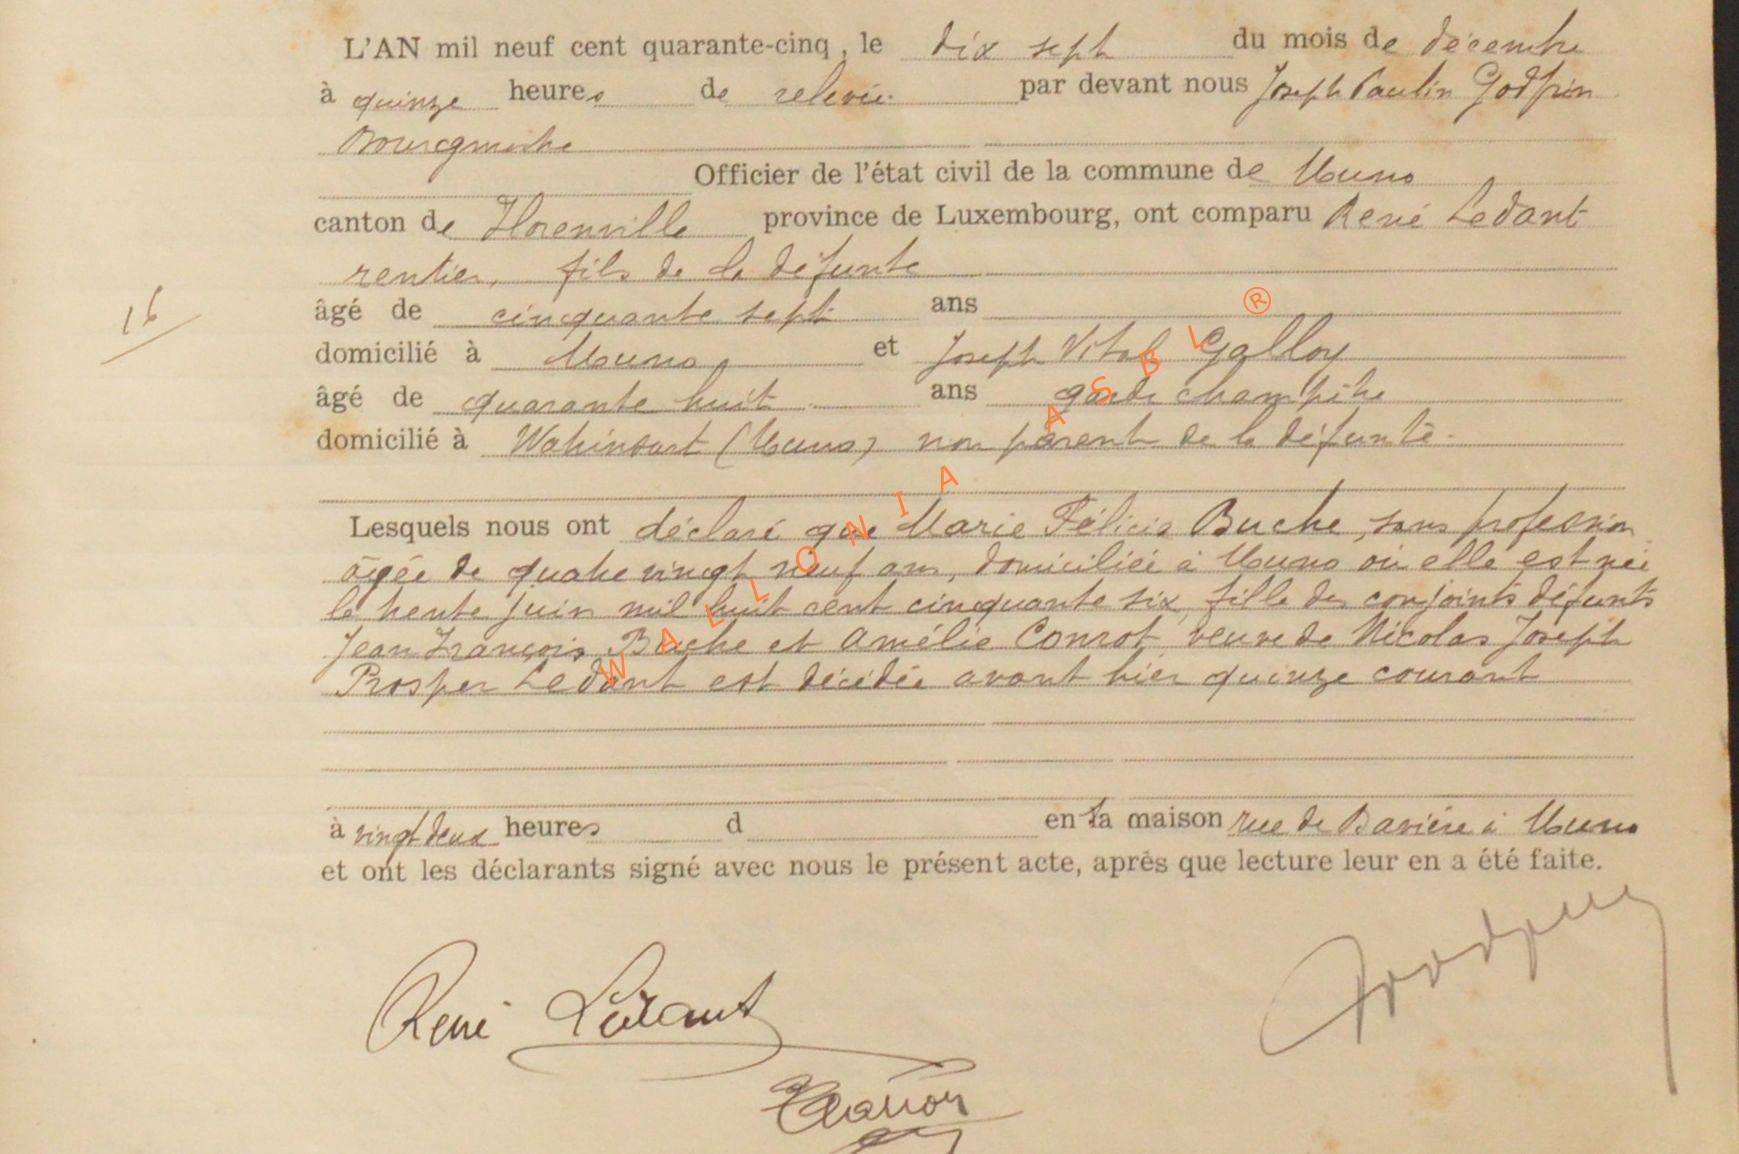 L'AN mil neuf cent quarante-cinq, le dix sept du mois de décembre
à quinze heures de relevée. par devant nous Joseph Paulin Godfrin
Bourgmestre
Officier de l'état civil de la commune de Muno
canton de Florenville province de Luxembourg, ont comparu René Ledant
rentier, fils de la défunte
âgé de cinquante sept ans
domicilié à Muno, et Joseph Vital Galloy
âgé de quarante huit ans garde champêtre
domicilié à Watrinsart (Muno) non parent de la défunte.
16
Lesquels nous ont déclaré que Marie Félicie Buche, sans profession
âgée de quatre vingt neuf ans, domiciliée à Muno où elle est née
le trente juin mil huit cent cinquante six, fille des conjoints défunts
Jean François Buche et Amélie Conrot, veuve de Nicolas Joseph
Prosper Ledant est décédée avant hier quinze courant
à vingt deux heures d en la maison rue de Bavière à Muno
et ont les déclarants signé avec nous le présent acte, après que lecture leur en a été faite.
René Ledant
WALLONIA ASBL ®